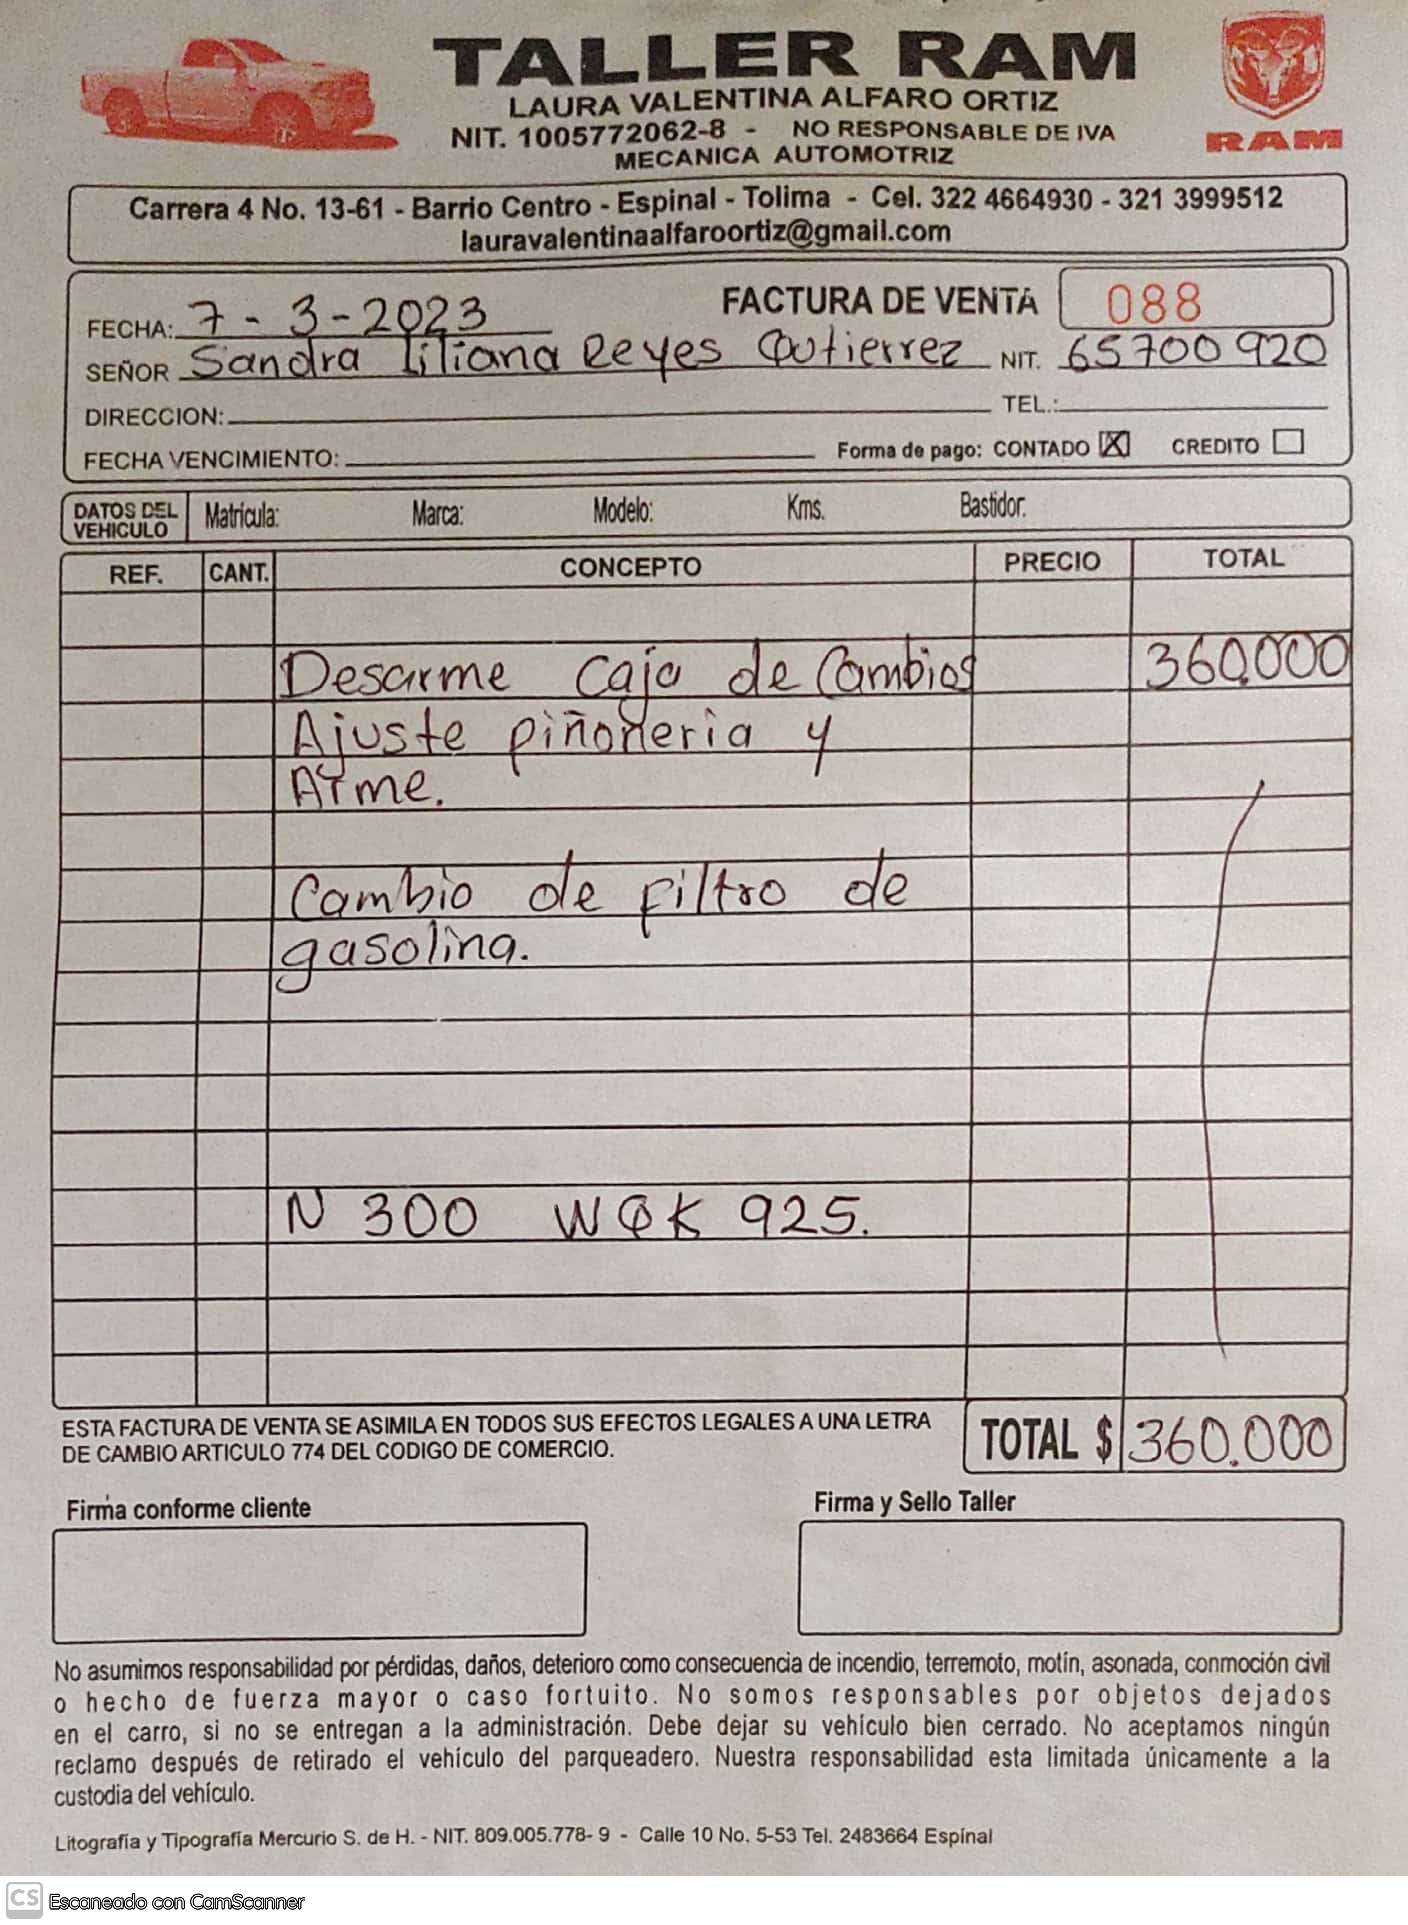 TALLER RAM
LAURA VALENTINA ALFARO ORTIZ
NIT. 1005772062-8 - NO RESPONSABLE DE IVA
MECANICA AUTOMOTRIZ
RAM
Carrera 4 No. 13-61 - Barrio Centro - Espinal - Tolima - Cel. 322 4664930 - 321 3999512
lauravalentinaalfaroortiz@gmail.com
FACTURA DE VENTA 088
FECHA: 7 - 3 - 2023
SEÑOR Sandra Liliana Reyes Gutierrez NIT. 65700920
DIRECCION: TEL.:
FECHA VENCIMIENTO: Forma de pago: CONTADO X CREDITO
DATOS DEL VEHICULO Matrícula: Marca: Modelo: Kms. Bastidor:
REF. CANT. CONCEPTO PRECIO TOTAL
Desarme caja de Cambios 360.000
Ajuste piñoneria y
Arme.
Cambio de filtro de
gasolina.
N 300 WGK 925.
ESTA FACTURA DE VENTA SE ASIMILA EN TODOS SUS EFECTOS LEGALES A UNA LETRA
DE CAMBIO ARTICULO 774 DEL CODIGO DE COMERCIO.
TOTAL $ 360.000
Firma conforme cliente Firma y Sello Taller
No asumimos responsabilidad por pérdidas, daños, deterioro como consecuencia de incendio, terremoto, motín, asonada, conmoción civil
o hecho de fuerza mayor o caso fortuito. No somos responsables por objetos dejados
en el carro, si no se entregan a la administración. Debe dejar su vehículo bien cerrado. No aceptamos ningún
reclamo después de retirado el vehículo del parqueadero. Nuestra responsabilidad esta limitada únicamente a la
custodia del vehículo.
Litografía y Tipografía Mercurio S. de H. - NIT. 809.005.778- 9 - Calle 10 No. 5-53 Tel. 2483664 Espinal
CS Escaneado con CamScanner